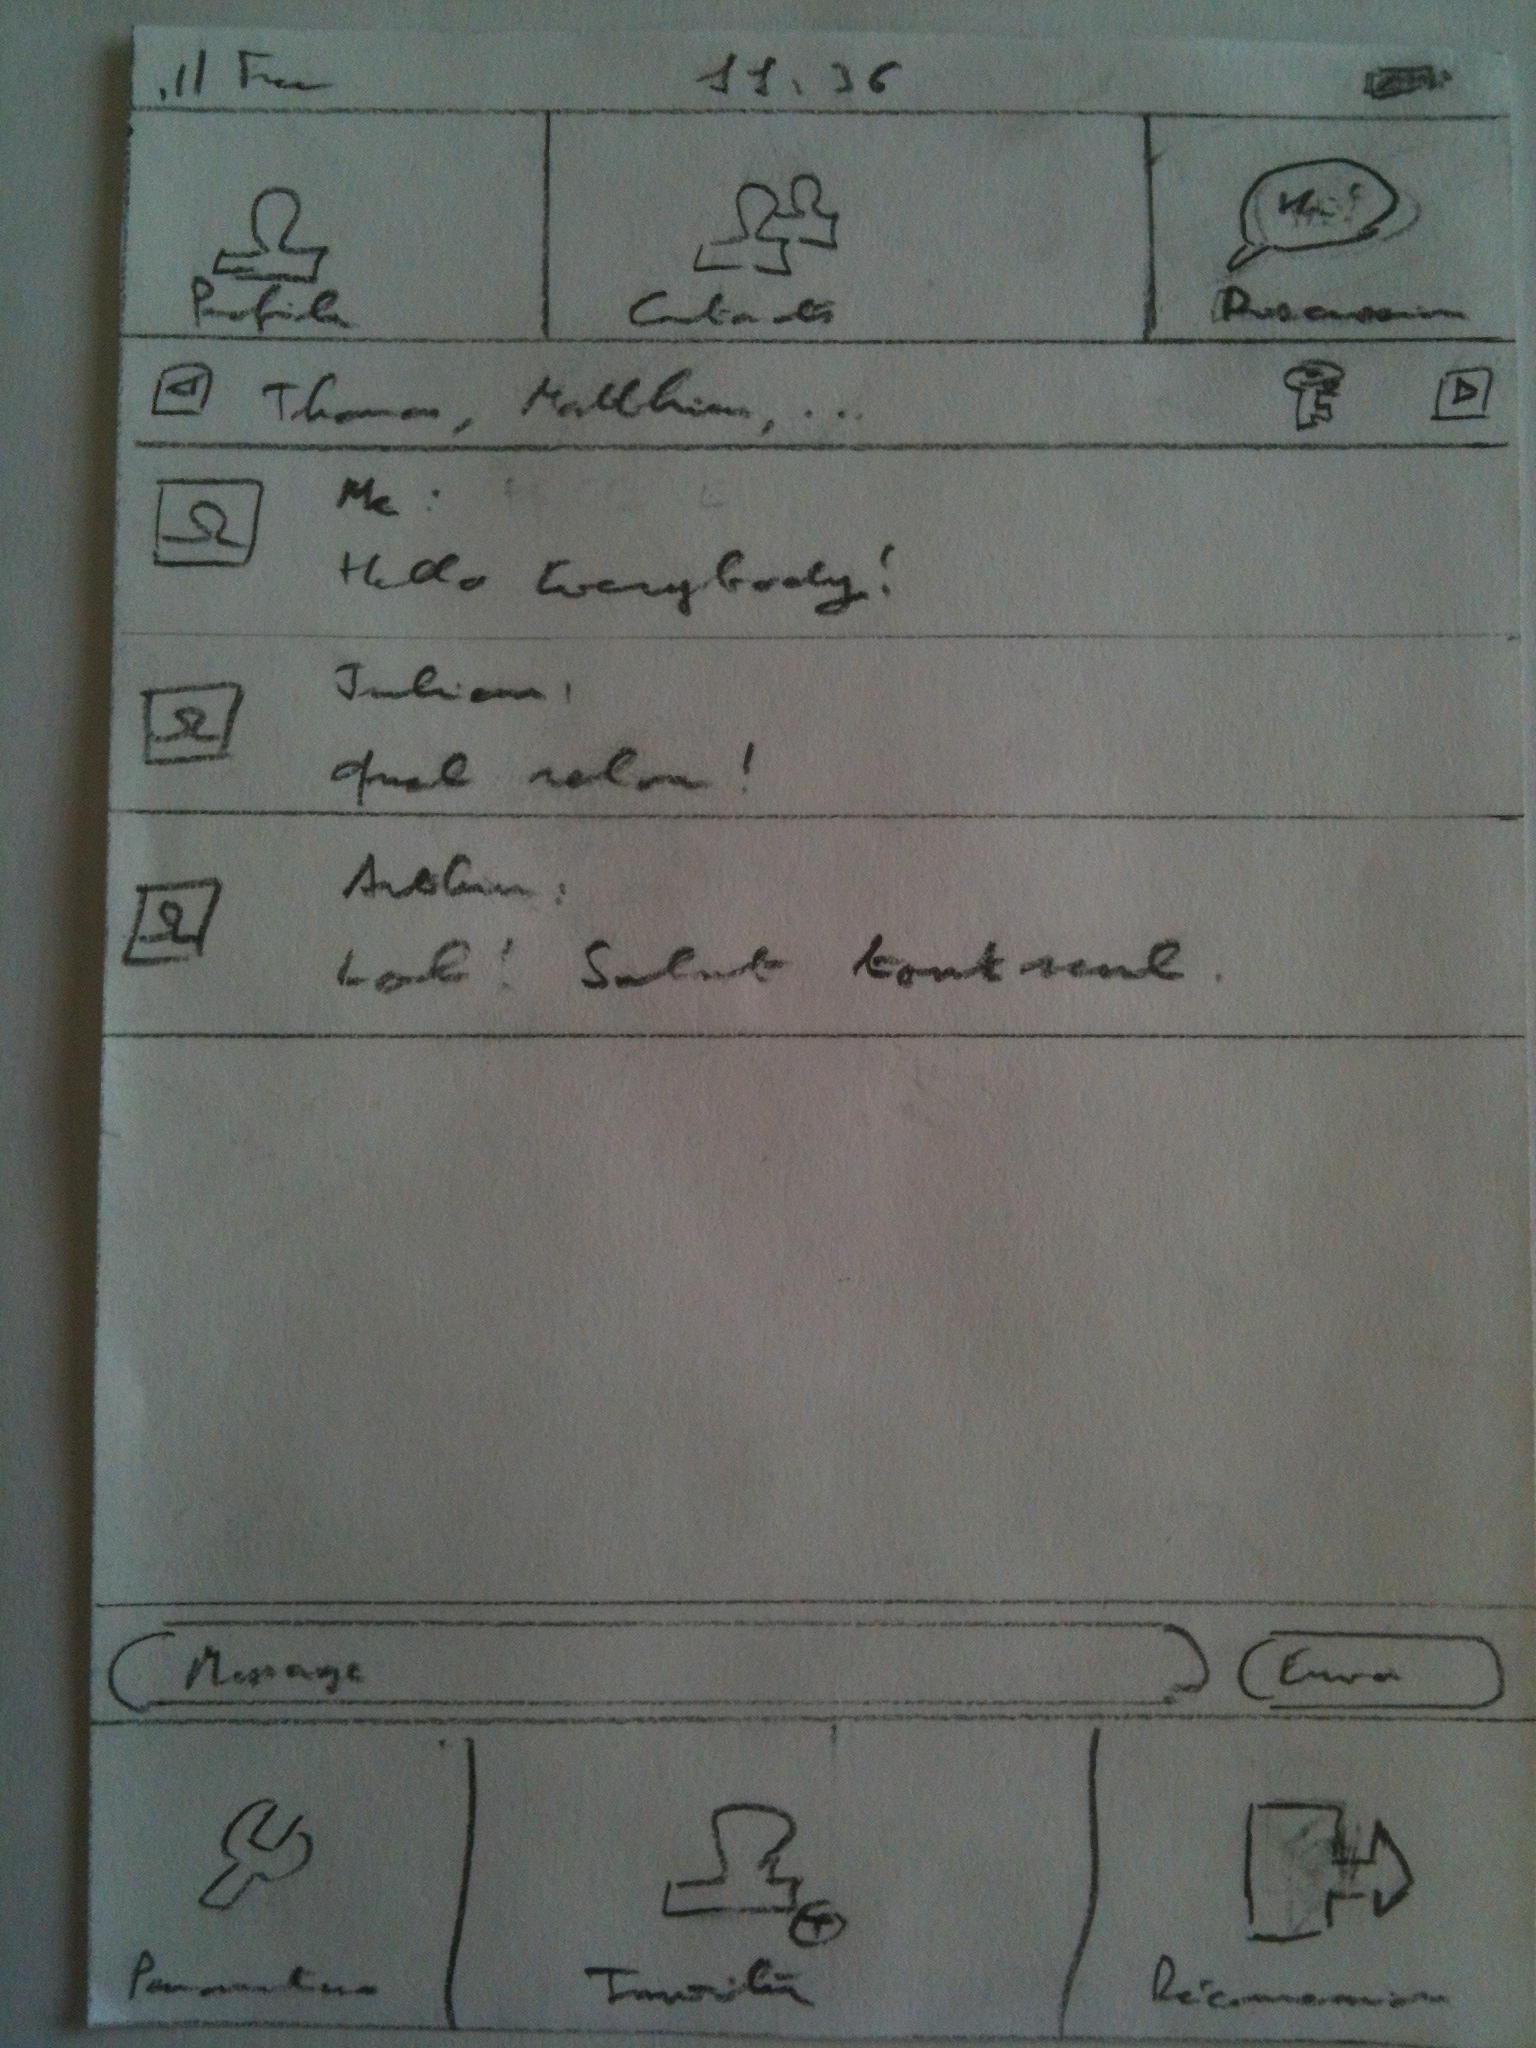 Free 11:36
Hi!
Profile Contacts Discussion
Thomas, Matthieu, ...
Me :
Hello Everybody!
Julien :
quel relou !
Arthur :
Look! Salut tout seul.
Message Envoi
Paramètres Invitation Déconnexion